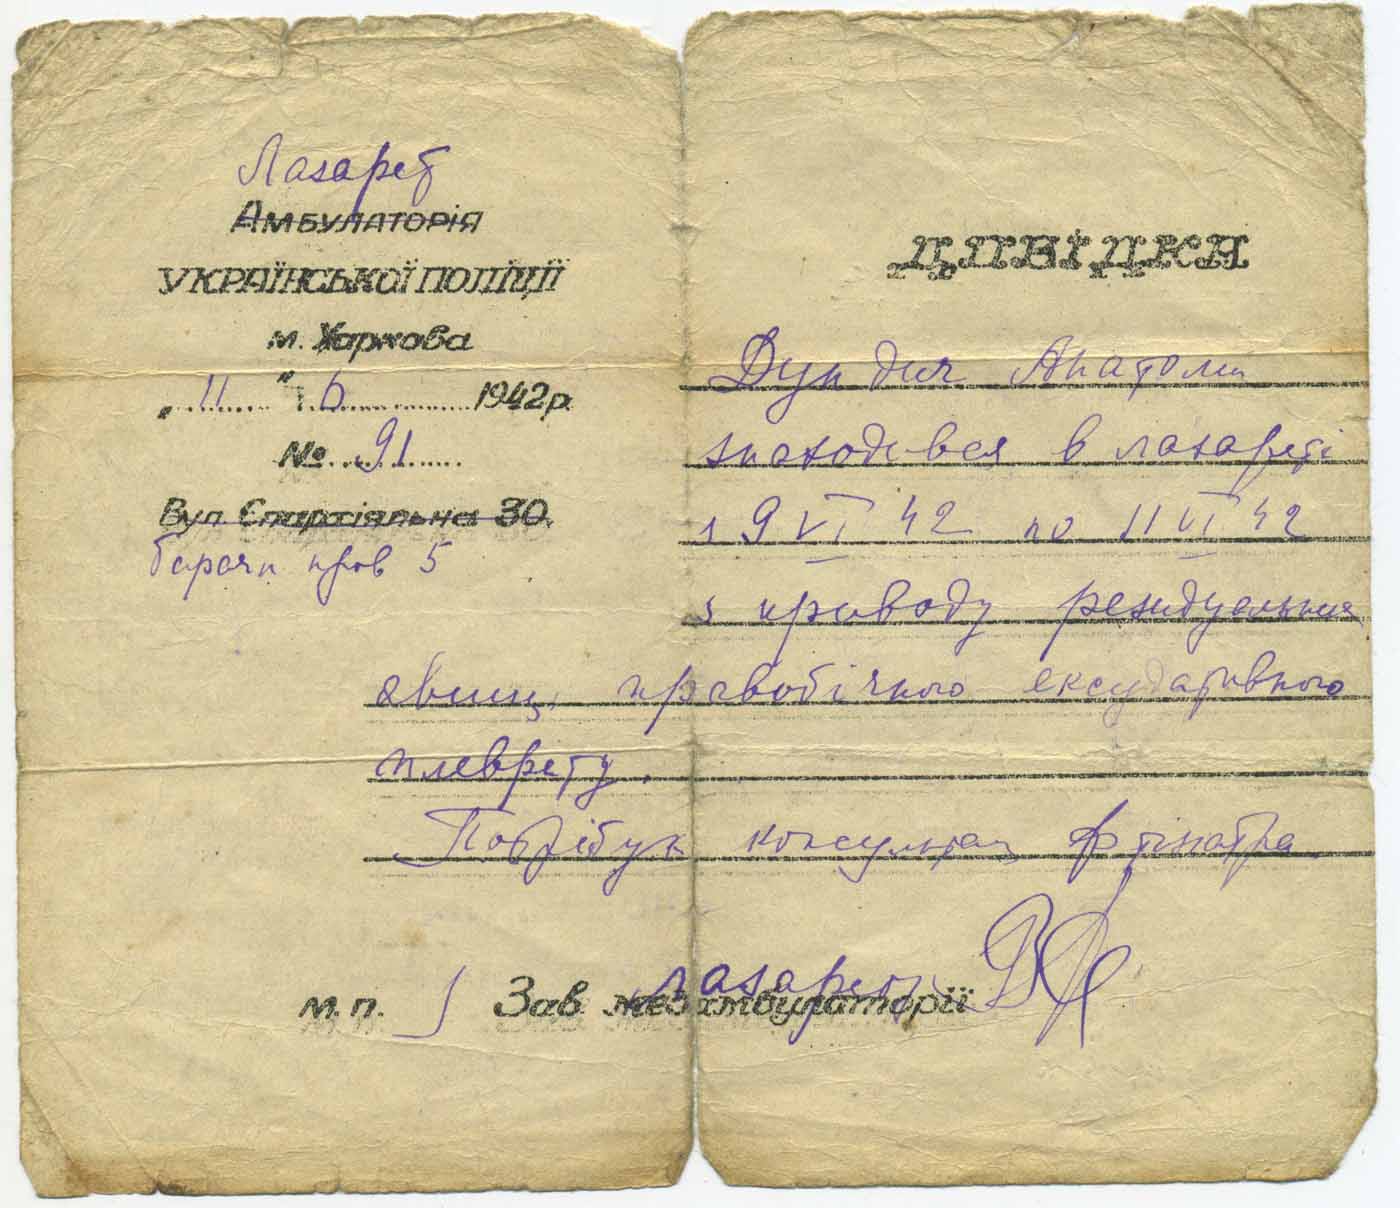 Лазарет
Амбулаторія
УКРАЇНСЬКОЇ ПОЛІЦІЇ
м. Харкова
„ 11 " 6 1942 р.
№ 91
Вул. Єпархіяльна 30.
пров 5
ДОВІДКА
Дундич Анатолий
знаходився в лазареті
з 9 VI 42 по 11 VI 42
з приводу резидуальних
явищ, правобічного ексудативного
плеврету.
Потрібує консультац фтізіатра.
м.п. Зав. лазарету
медамбулаторії